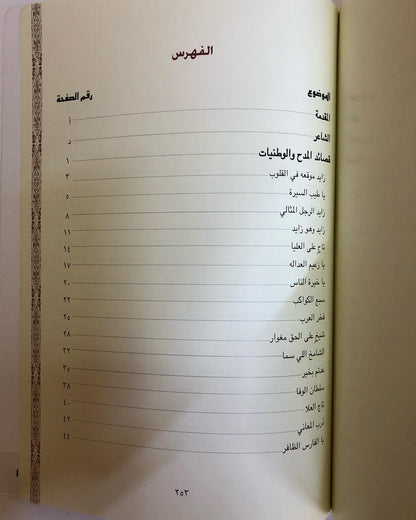 الفهرس
الموضوع رقم الصفحة
المقدمة أ
الشاعر د
قصائد المدح والوطنيات ١
زايد موقعه في القلوب ٣
يا طيب السيرة ٥
زايد الرجل المثالي ٨
زايد وهو زايد ١١
تاج على العليا ١٤
يا زعيم العداله ١٧
يا خيرة الناس ٢٠
سبع الكواكب ٢٢
فخر العرب ٢٥
شيخ على الحق مغوار ٢٨
الشامخ اللي سما ٣٢
عدتم بخير ٣٥
سلطان الوفا ٣٨
تاج العلا ٤٠
لرب المعاني ٤٢
يا الفارس الظافر ٤٤
٢٥٣